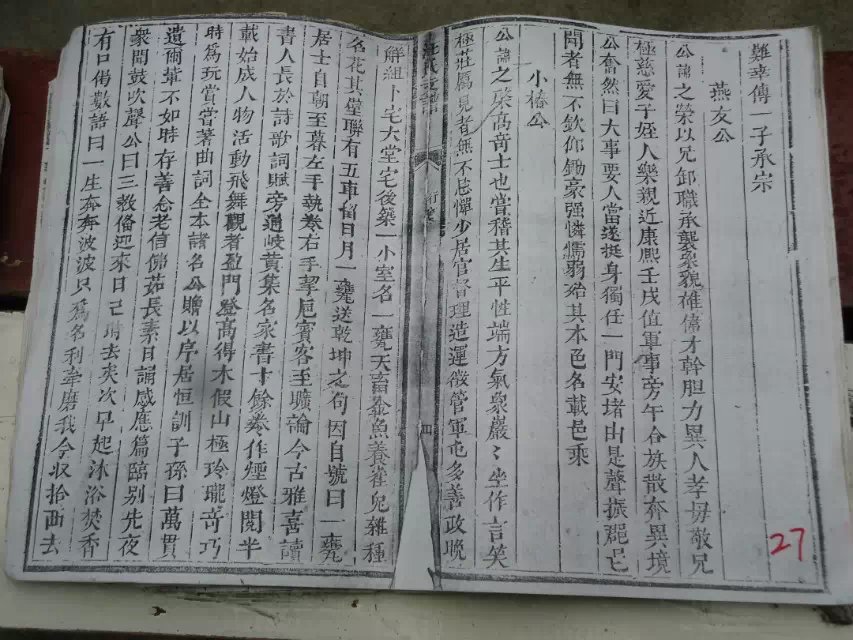 難幸傳一子承宗
燕友公
公諱之榮以兄卸職承襲衆貌雄偉才幹胆力異人孝毋敬兄
極慈愛子姪人樂親近康熙壬戌值軍事旁午合族散奔異境
公奮然曰大事要人當遂挺身獨任一門安堵由是聲振郡邑
聞者無不欽仰鋤豪强憐懦弱始其本色名載邑乘
小椿公
公諱之棻高奇士也嘗稽其生平性端方氣象嚴〻坐作言笑
極莊厲見者無不忌憚少居官督理造運徵管軍屯多善政晚
行
四
解組卜宅大堂宅後築一小室名一甕天畜金魚養雀兒雜種
名花其堂聯有五車留日月一甕送乾坤之句因自號曰一甕
居士自朝至暮左手執卷右手挈巵賓客至曠論今古雅喜讀
書人長於詩歌詞賦旁通岐黄集名家書十餘券作煙燈閱半
載始成人物活動飛舞觀者盈門登高得木假山極玲瓏奇巧
時爲玩賞嘗著曲詞全本諸名公贈以序居恒訓子孫曰萬貫
遺爾輩不如時存善念老信佛茹長素日誦感應篇臨別先夜
衆聞鼓吹聲公曰三教俻迎來日己時去矣次早起沐浴焚香
有口偈數語曰一生奔奔波波只爲名利牽磨我今収拾西去
27